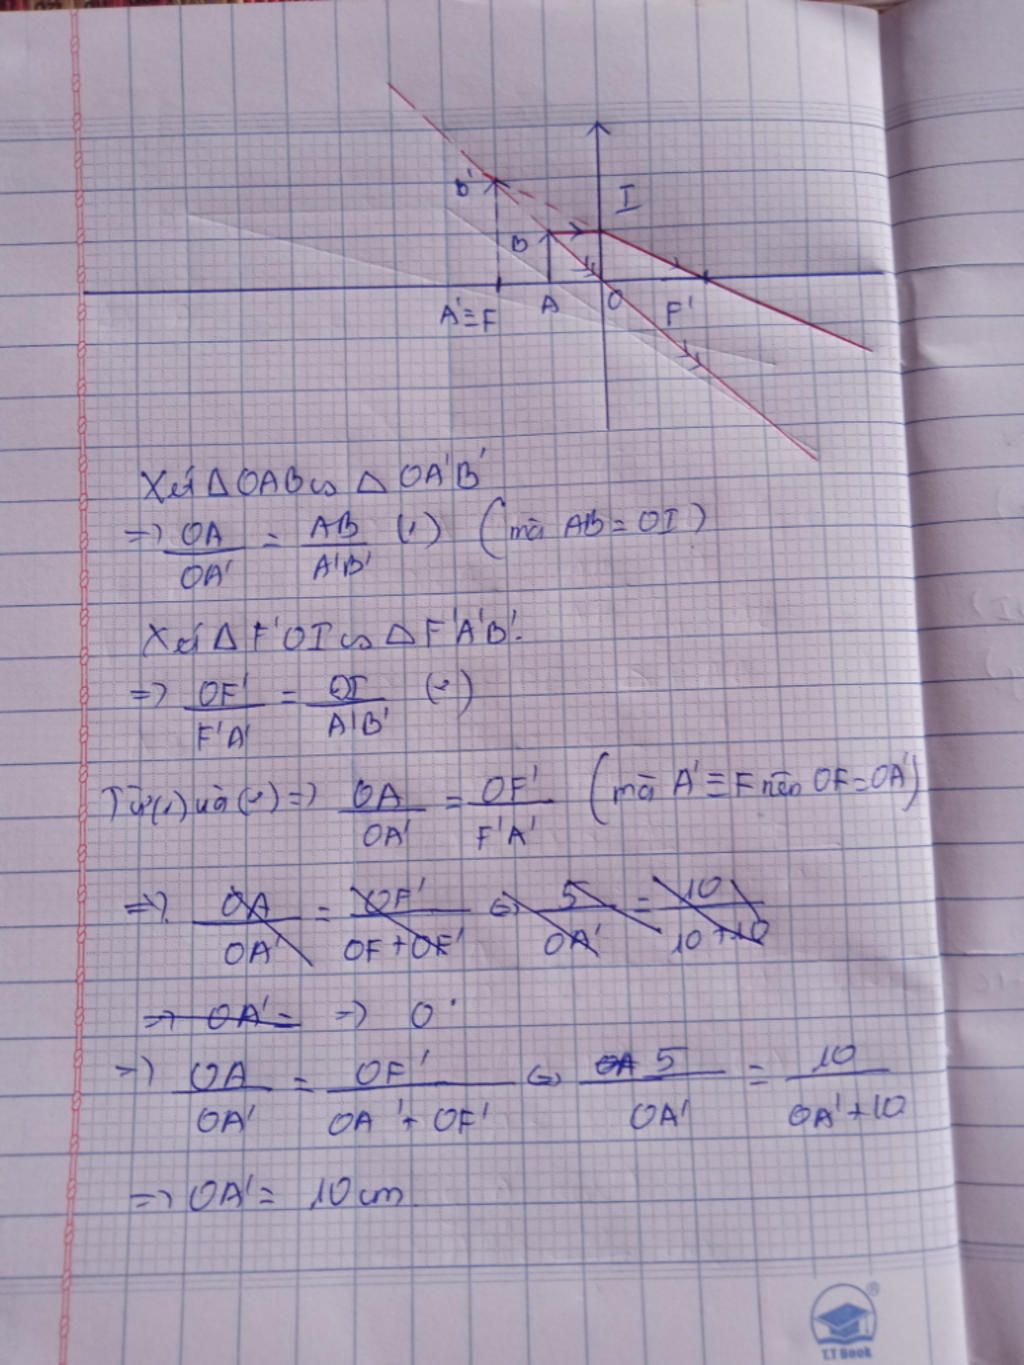 B'
I
B
A'≡F
A
O
F'
Xét ΔOAB ∽ ΔOA'B'
=> OA/OA' = AB/A'B' (1) (mà AB = OI)
Xét ΔF'OI ∽ ΔF'A'B'.
=> OF'/F'A' = OI/A'B' (2)
Từ (1) và (2) => OA/OA' = OF'/F'A' (mà A'≡F nên OF=OA')
=> OA/OA' = OF'/OF+OF' <=> 5/OA' = 10/10+10
=> OA' = => O
=> OA/OA' = OF'/OA'+OF' <=> OA 5/OA' = 10/OA'+10
=> OA' = 10cm
®
T.T Book